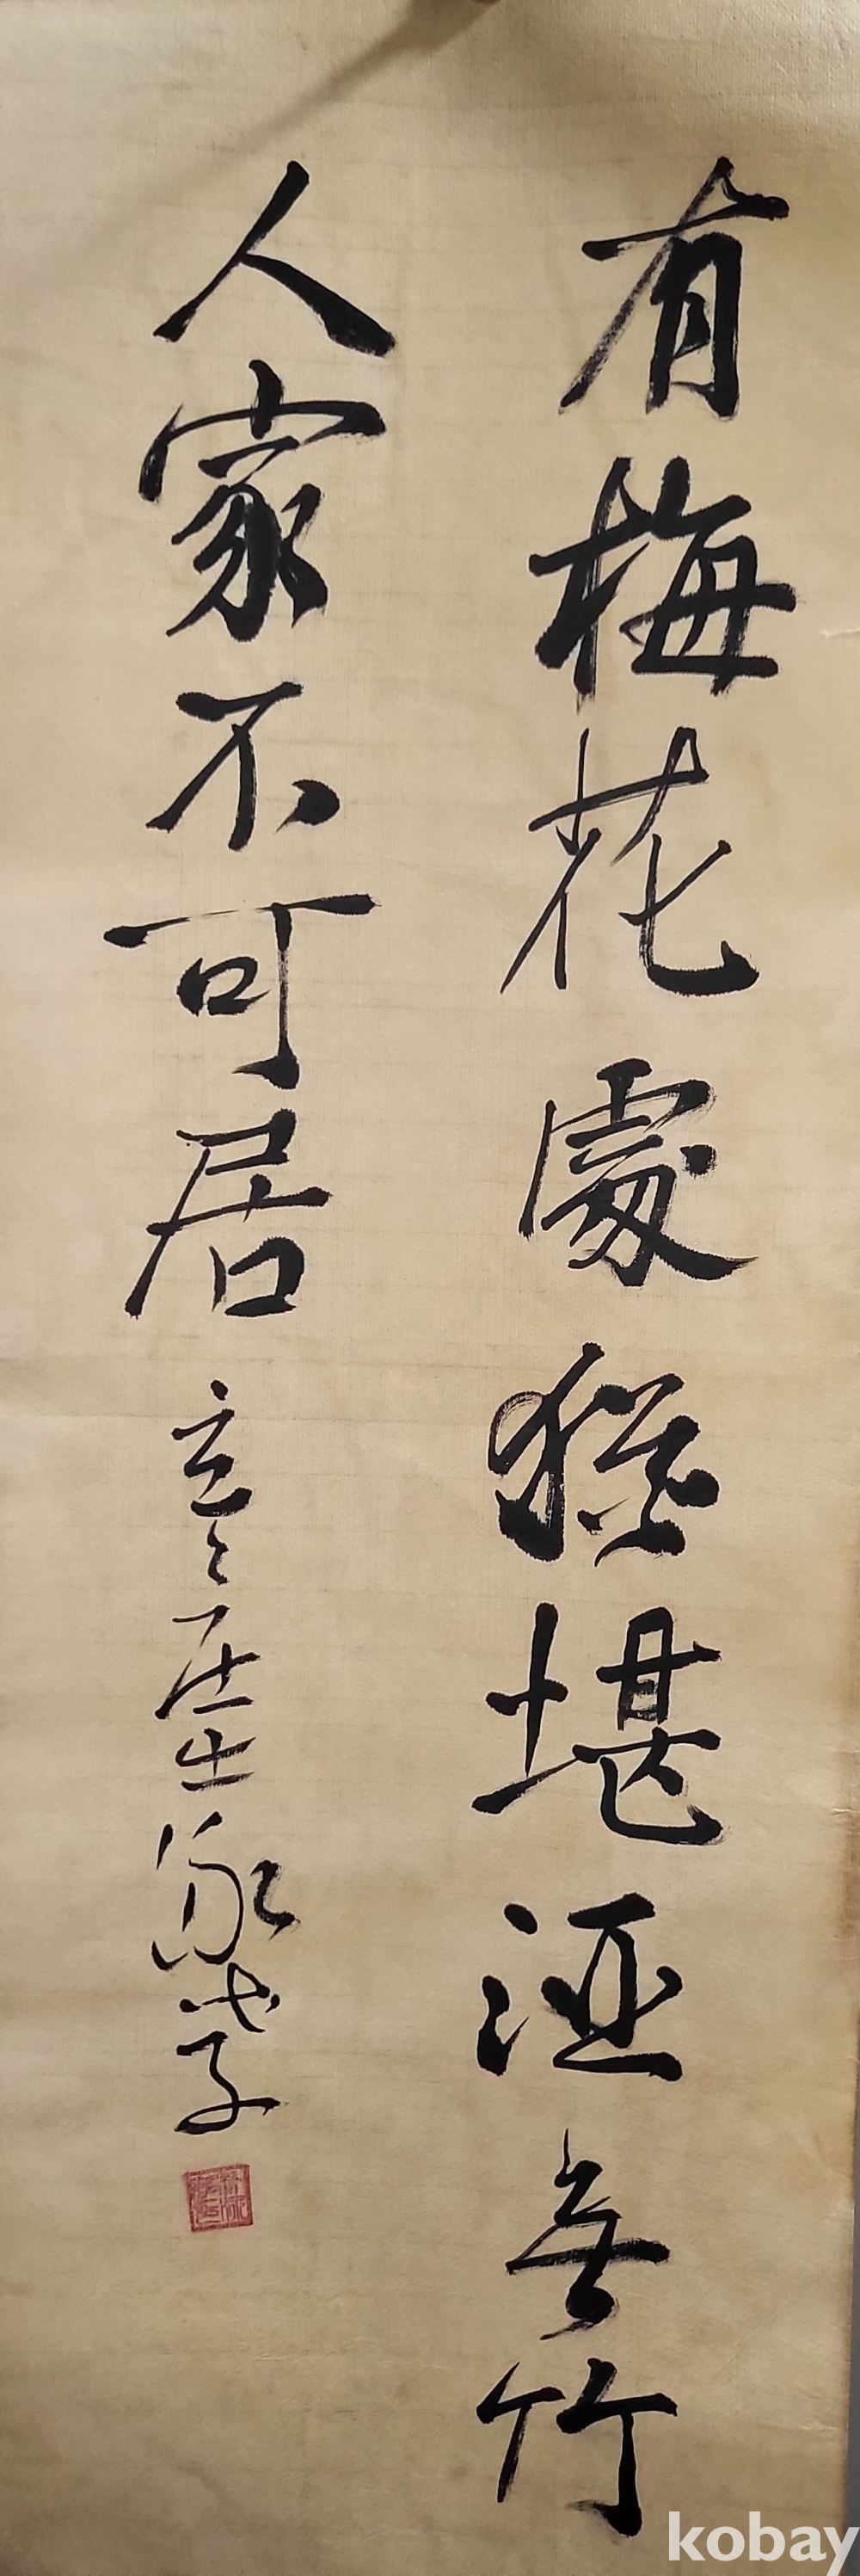 有梅花處猶堪酒無竹
人家不可居 玄々居士泳孝
kobay